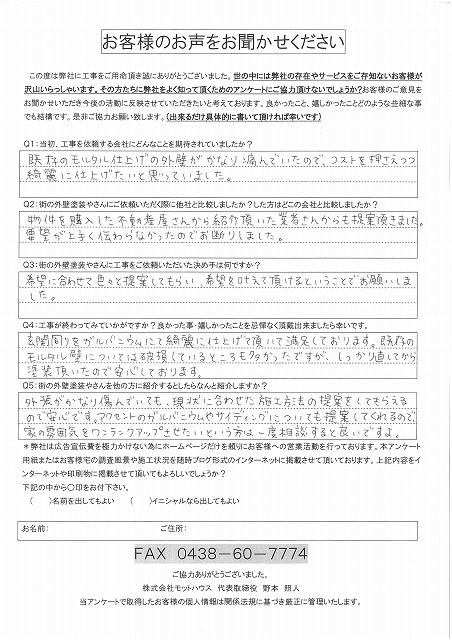 お客様のお声をお聞かせください
この度は弊社に工事をご用命頂き誠にありがとうございました。世の中には弊社の存在やサービスをご存知ないお客様が
沢山いらっしゃいます。その方たちに弊社をよく知って頂くためのアンケートにご協力頂けないでしょうか?お客様のご意見を
お聞かせいただき今後の活動に反映させていただきたいと考えております。良かったこと、嬉しかったことどのような些細な事
でも結構です。是非ご協力お願い致します。(出来るだけ具体的に書いて頂ければ幸いです)
Q1:当初、工事を依頼する会社にどんなことを期待されていましたか?
既存のモルタル仕上げの外壁がかなり痛んでいたので、コストを押さえつつ
綺麗に仕上げたいと思っていました。
Q2:街の外壁塗装やさんにご依頼いただく際に他社と比較しましたか?した方はどこの会社と比較しましたか?
物件を購入した不動産屋さんから紹介頂いた業者さんからも提案頂きました。
要望が上手く伝わらなかったのでお断りしました。
Q3:街の外壁塗装やさんに工事をご依頼いただいた決め手は何ですか?
希望に合わせて色々と提案してもらい、希望を叶えて頂けるということでお願いしま
した。
Q4:工事が終わってみていかがですか?良かった事・嬉しかったことを忌憚なく頂戴出来ましたら幸いです。
玄関周りをガルバニウムにて綺麗に仕上げて頂いて満足しております。既存の
モルタル壁については破損しているところも多かったですが、しっかり直してから
塗装頂いたので安心しております。
Q5:街の外壁塗装やさんを他の方に紹介するとしたらなんと紹介しますか?
外装がかなり傷んでいても、現状に合わせた施工方法の提案をしてもらえる
ので安心です。アクセントのガルバニウムやサイディングについても提案してくれるので
家の雰囲気をワンランクアップさせたいという方は一度相談すると良いですよ。
*弊社では広告宣伝費を極力かけない為にホームページだけを頼りにお客様への営業活動を行っております。本アンケート
用紙またはお客様宅の調査風景や施工状況を随時ブログ形式のインターネットに掲載させて頂いております。上記内容をイ
ンターネットや印刷物に掲載させて頂いてもよろしいでしょうか?
下記の中から〇印をお付下さい。
( )名前を出してもよい ( )イニシャルなら出してもよい
お名前: ご住所:
FAX 0438-60-7774
ご協力ありがとうございました。
株式会社モットハウス 代表取締役 野本 照人
当アンケートで取得したお客様の個人情報は関係法規に基づき厳正に管理いたします。